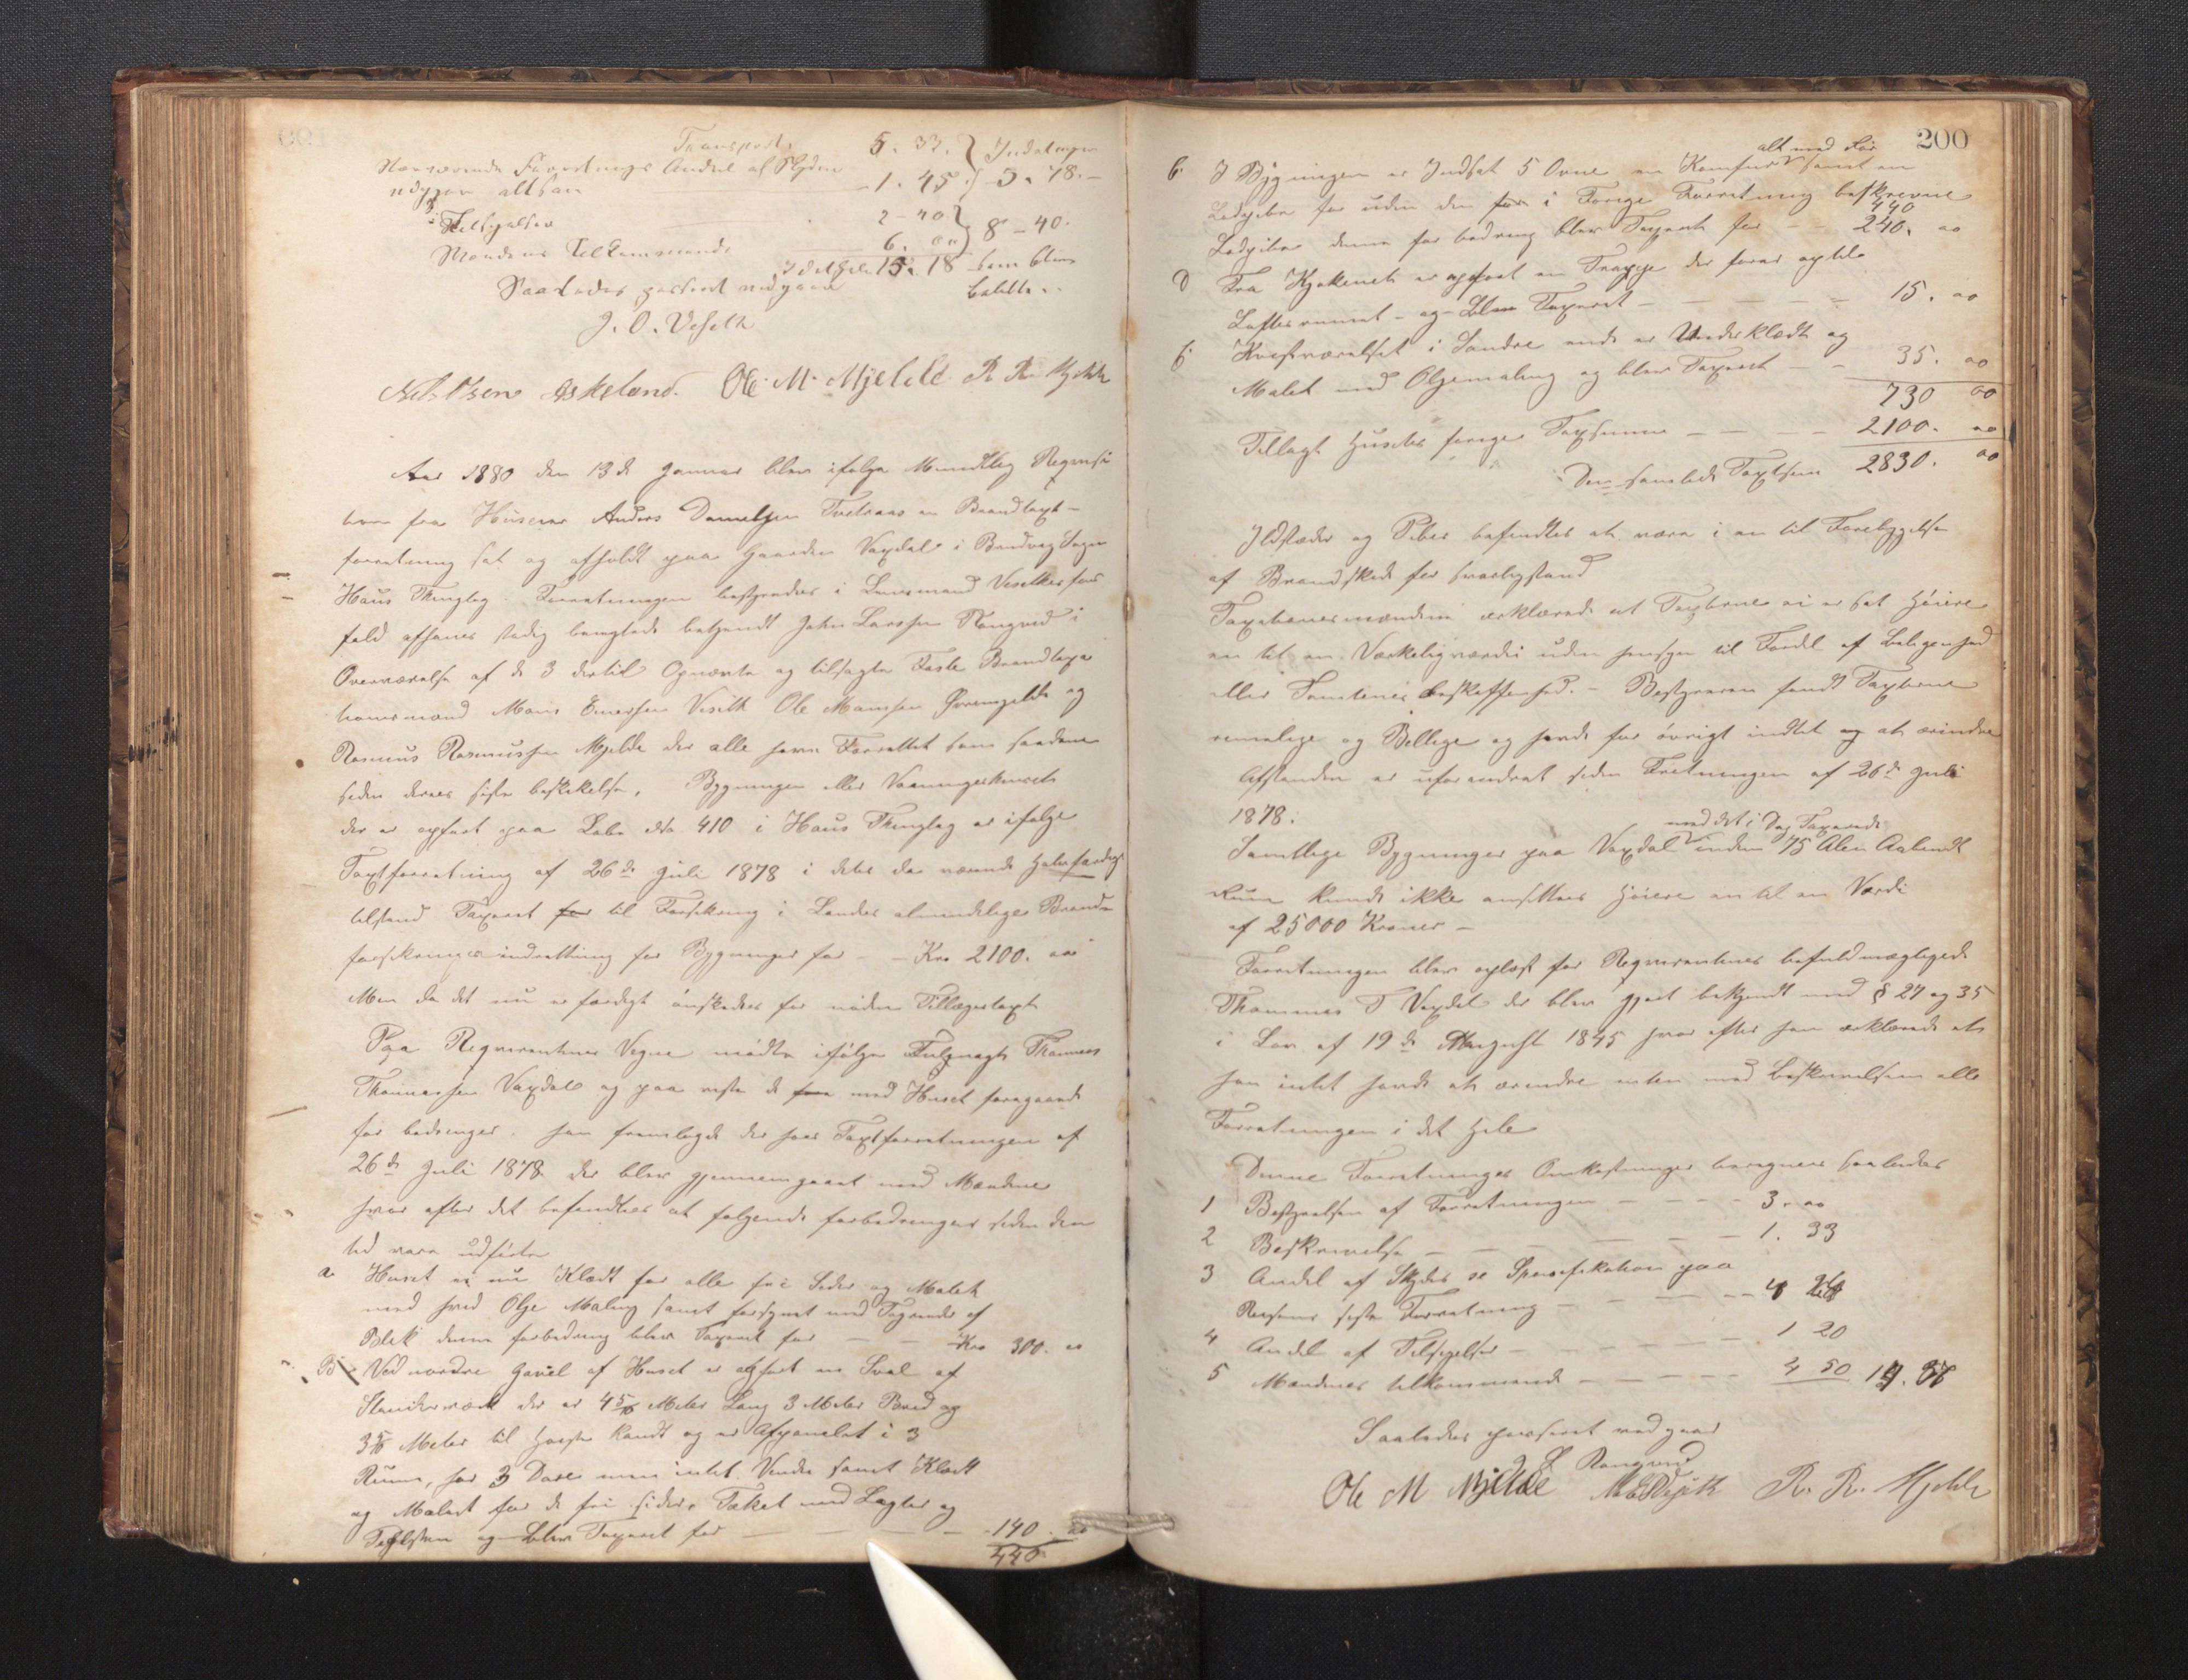 Transport. 5. 33. Indatingen
Nærværende Forretnings Andel af Skyden
udgjør altsaa 1. 45. 3. 78.
Tilsigelser 2-40
Mændenes Tilkommende 6. 00 8-40.
Idethele 15. 18 som blev
Saaledes passeret vedgaaes betalte.
J. O. Veseth
Nils Olsen Askeland. Ole M. Mjelde R. R. Mjelde
Aar 1880 den 13de Januar blev ifølge Mundtlig Reqvisi
tion fra Huseier Anders Danielsen Tveteraas en Brandtaxt-
forretning sat og afholdt paa Gaarden Vaxdal i Bruvig Sogn
Haus Thinglag. Forretningen bestyredes i Lensmand Veseths for
fald af hans stedig beregtede betjendt John Larssen Rongved i
Overværelse af de 3 dertil Opnævnte og tilsagte Faste Brandtaxa
tionsmænd Mons Einersen Veseth Ole Monsen Øvremjelde og
Rasmus Rasmussen Mjelde der alle have Forrettet som saadane
siden deres siste beskikelse. Bygningen eller Vaaningshuset
der er opført paa Løbe No 410 i Haus Thinglag er ifølge
Taxtforretning af 26de Juli 1878 i dets da værende Halvfærdige
tilstand Taxeret for til Forsikring i Landes almindelige Brand-
forsikringsindrettning for Bygninger for - - Kro 2100. 00
Men da det nu er færdigt ønskedes for nöden Tillægstaxt
Paa Reqvirentens Vegne mødte ifølge Fulmagt Thommas
Thommassen Vaxdal og paa viste de fore med Huset foregaaede
for bedringer. han fremlagde der hos Taxtforretningen af
26de Juli 1878 der blev gjennemgaaet med Mændene
hvor efter det befandtes at følgende forbedringer siden den
tid vare udførte
a Huset er nu Klædt for alle frie Sider og Malet
med hvid Olje Maling samt forsynet med Tagrender af
Blik denne forbedring blev Taxeret for - - Kro 300. 00
B Ved nordre Gavel af Huset er opført en Sval af
Stenderværk der er 4 5/8 Meter Lang 3 Meter Bred og
3 5/8 Meter til høiste Kandt og er Afpanelet i 3
Rumm, har 3 Døre men intet Vindu samt Klædt
og Malert for de frie sider. Taket med Lægter og
Teglsten og blev Taxeret for - - - 140. 00
440
200
alt med Rør
C. I Bygningen er Indsat 5 Ovne en Komfur samt en
Ledpibe for uden den for i Forige Forretning beskrevne
440
Ledpibe denne for bedring blev Taxeret for - - 240. 00
D Fra Kjøkenet er opført en Trappe der fører op til
Loftes rummet - og blev Taxeret - - - - 15. 00
E Kvistværelset i Søndre ende er Underklædt og
Malet med Oljemaling og blev Taxeret - 35. 00
730 00
Tillagt Husets forige Taxsumme - - - 2100. 00
Den samlede Taxtsum 2830. 00
Ildstæder og Piber befindtes at være i en til Forebyggelse
af Brandskade for svarligstand
Taxationsmændene erklærede at Taxterne ei er sat Høiere
en til en Verkelig værdi uden hensyn til Fordel af Beligenhed
eller Tomtenes beskaffenhed. - Bestyreren fandt Taxterne
rimelige og Bellige og havde for øvrigt indtet og at erindre
Afstanden er uforandret siden Fretningen af 26de Juli
1878.
med det i Dag Taxerede
Samtlige Bygninger paa Vaxdal inden 75 Alen Aabendt
Rum kunde ikke ansettes Høiere en til en Værdi
af 25000 Kroner -
Forretningen blev oplæst for Reqvirentens befuldmægtigede
Thommas T Vaxdal der blev gjort bekjendt med § 27 og 35
i Lov af 19de August 1845 hvor efter han erklærede at
han intet havde at erindre enten mod beskrivelsen elle
Forretningen i det Hele
Denne Forretninges Omkostninger beregnes saaledes
1 Bestyrelsen af Forretningen - - - - 3. 00
2 Beskrivelse - - - - - 1. 33
3 Andel af Skyds se Spesefikation paa
Reisens siste Forretning - - - - 4
4 Andel af Tilsigelser - - - - 1 20
5 Mændenes tilkommende - - - - 4 50
Saaledes passeret vedgaaes
J L Rongved
Ole M Mjelde M E Vesjeth R. R. Mjelde